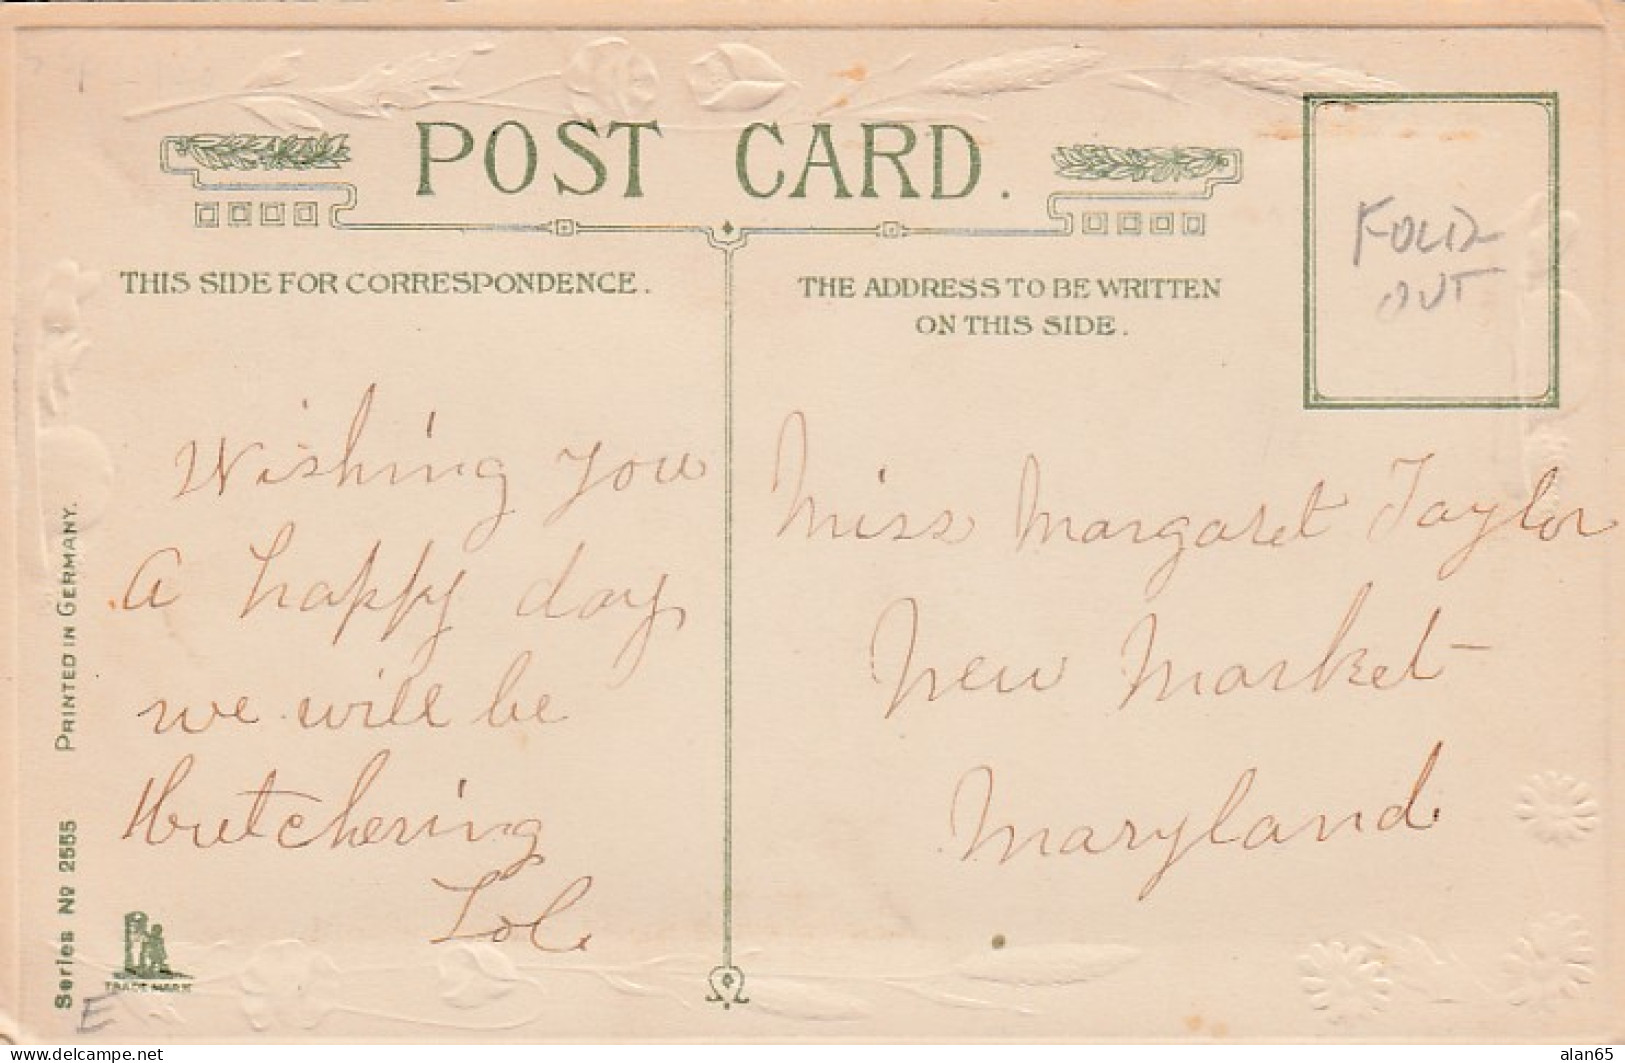 POST CARD.
THIS SIDE FOR CORRESPONDENCE.
THE ADDRESS TO BE WRITTEN
ON THIS SIDE.
FOLD
OUT
Wishing you
a happy day
we will be
Butchering
Lol.
Miss Margaret Taylor
New Market
Maryland
Series No 2555 PRINTED IN GERMANY.
TRADE MARK
E
www.delcampe.net
alan65